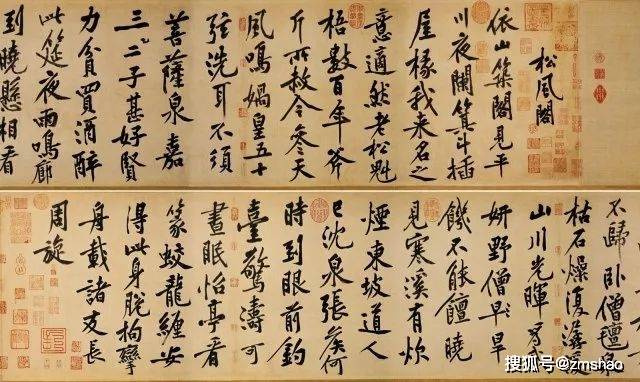 松風閣
依山築閣見平
川夜闌箕斗插
屋椽我來名之
意適然老松魁
梧數百年斧
斤所赦今參天
風鳴媧皇五十
弦洗耳不須
菩薩泉嘉
三二子甚好賢
力貧買酒醉
此筵夜雨鳴廊
到曉懸相看
不歸臥僧氈泉
枯石燥復潺湲
山川光暉為
妍野僧早旱
饑不能饘曉
見寒溪有炊
煙東坡道人
已沈泉張侯何
時到眼前釣
臺驚濤可
晝眠怡亭看
篆蛟龍纏安
得此身脫拘攣
舟載諸友長
周旋
搜狐号@zmshao